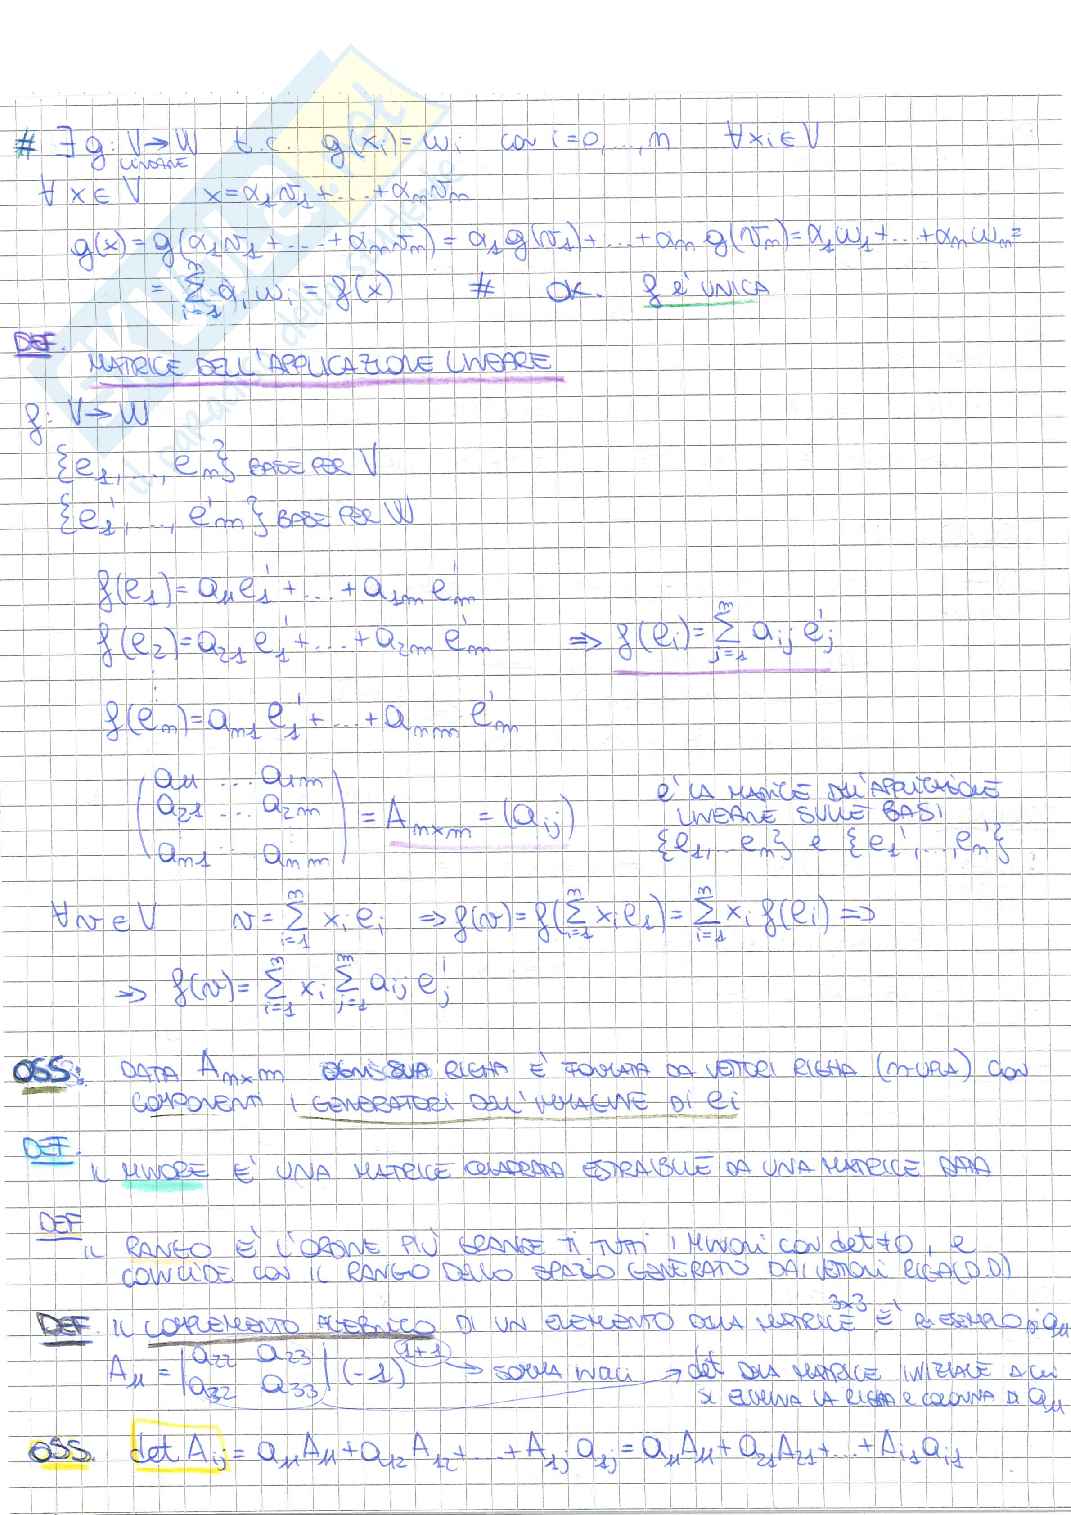 # ∃ g: V→W t.c. g(xi) = wi con i=0,...,n ∀xi∈V
LINEARE
∀ x∈V x=α1v1+...+αnvn
g(x)= g(α1v1+...+αnvn)= α1g(v1)+...+αn g(vn)=α1w1+...+αnwn=
= Σ(i=1..n) αi wi = f(x) # OK. f è UNICA
DEF.
MATRICE DELL'APPLICAZIONE LINEARE
f: V→W
{e1,..., en} BASE PER V
{e'1,..., e'm} BASE PER W
f(e1)= a11e'1+...+a1m e'm
f(e2)= a21 e'1+...+a2m e'm ⇒ f(ei)= Σ(j=1..m) aij e'j
⋮
f(en)= an1 e'1+...+anm e'm
(a11 ... a1m
a21 ... a2m = An×m = (aij)
⋮
an1 ... anm)
È LA MATRICE DELL'APPLICAZIONE
LINEARE SULLE BASI
{e1,...en} e {e'1,...,e'n}
∀v∈V v= Σ(i=1..n) xi ei ⇒ f(v)= f(Σ(i=1..n) xi e1)= Σ(i=1..n) xi f(ei) ⇒
⇒ f(v)= Σ(i=1..n) xi Σ(j=1..m) aij e'j
OSS: DATA An×m OGNI SUA RIGHA È FORMATA DA VETTORI RIGHA (n-UPLA) CON
COMPONENTI I GENERATORI DELL'IMMAGINE DI ei
DEF.
IL MINORE E' UNA MATRICE QUADRATA ESTRAIBILE DA UNA MATRICE DATA
DEF
IL RANGO È L'ORDINE PIÙ GRANDE TI TUTTI I MINORI CON det≠0, e
COINCIDE CON IL RANGO DELLO SPAZIO GENERATO DAI VETTORI RIGA (D.D)
DEF. IL COMPLEMENTO ALGEBRICO DI UN ELEMENTO DELLA MATRICE 3×3 È AD ESEMPIO DI a11
A11 = |a22 a23
a32 a33| (-1)^(1+1) → SOMMA INDICI → det DELLA MATRICE INIZIALE DI CUI
SI ELIMINA LA RIGHA E COLONNA DI a11
OSS. det Aij = a11A11+a12A12+...+A1j a1j = a11A11+a21A21+...+Ai1ai1